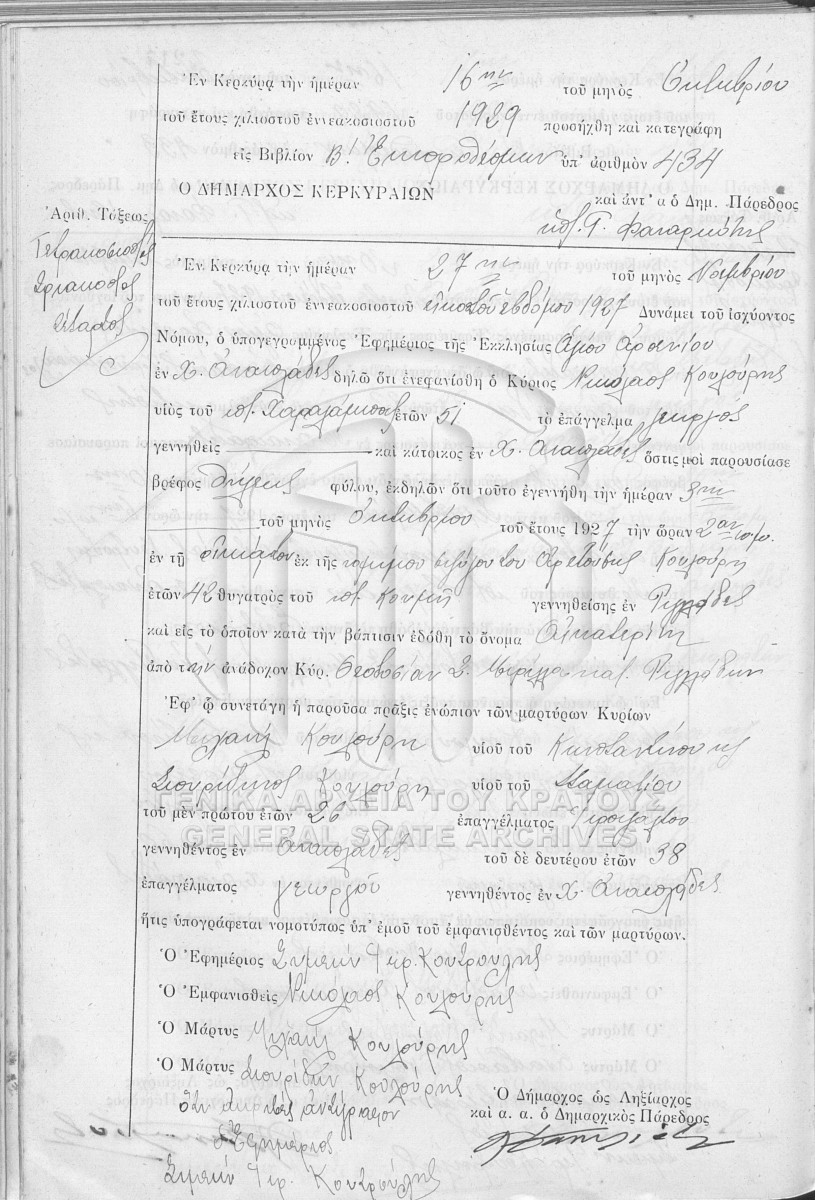 Ἐν Κερκύρᾳ τὴν ἡμέραν 16ην τοῦ μηνὸς Ὀκτωβρίου
τοῦ ἔτους χιλιοστοῦ ἐννεακοσιοστοῦ 1929 προσήχθη καὶ κατεγράφη
εἰς Βιβλίον Β! ὑπ' ἀριθμὸν 434
Ο ΔΗΜΑΡΧΟΣ ΚΕΡΚΥΡΑΙΩΝ
καὶ ἀντ' α ὁ Δημ. Πάρεδρος
Ἀριθ. Τάξεως
Τετρακοσιοστὸς
Τριακοστὸς
Τέταρτος
Ἐν Κερκύρᾳ τὴν ἡμέραν 27ην τοῦ μηνὸς Νοεμβρίου
τοῦ ἔτους χιλιοστοῦ ἐννεακοσιοστοῦ εἰκοστοῦ ἑβδόμου 1927 Δυνάμει τοῦ ἰσχύοντος
Νόμου, ὁ ὑπογεγραμμένος Ἐφημέριος τῆς Ἐκκλησίας Ἁγίου Ἀρσενίου
ἐν Χ. Ἀναπλάδες δηλῶ ὅτι ἐνεφανίσθη ὁ Κύριος Νικόλαος Κουλούρης
υἱὸς τοῦ ποτ. Χαραλάμπους ἐτῶν 51 τὸ ἐπάγγελμα γεωργός
γεννηθεὶς καὶ κάτοικος ἐν Χ. Ἀναπλάδες ὅστις μοὶ παρουσίασε
βρέφος θήλεος φύλου, ἐκδηλῶν ὅτι τοῦτο ἐγεννήθη τὴν ἡμέραν 3ην
τοῦ μηνὸς Ὀκτωβρίου τοῦ ἔτους 1927 τὴν ὥραν 2αν
ἐν τῇ ἐκ τῆς νομίμου συζύγου του Ἀρετούσης Κουλούρη
ἐτῶν 42 θυγατρὸς τοῦ ποτ. γεννηθείσης ἐν Ριγγλάδες
καὶ εἰς τὸ ὁποῖον κατὰ τὴν βάπτισιν ἐδόθη τὸ ὄνομα Αἰκατερίνη
ἀπὸ τὴν ἀνάδοχον Κύρ. Θεοδοσίαν Σ.
Ἐφ' ᾧ συνετάγη ἡ παροῦσα πρᾶξις ἐνώπιον τῶν μαρτύρων Κυρίων
Μιχαὴλ Κουλούρη υἱοῦ τοῦ Κωνσταντίνου
Σπυρίδωνος Κουλούρη υἱοῦ τοῦ Σταματίου
τοῦ μὲν πρώτου ἐτῶν 26 ἐπαγγέλματος
γεννηθέντος ἐν Ἀναπλάδες τοῦ δὲ δευτέρου ἐτῶν 38
ἐπαγγέλματος γεωργοῦ γεννηθέντος ἐν Χ. Ἀναπλάδες
ἥτις ὑπογράφεται νομοτύπως ὑπ' ἐμοῦ τοῦ ἐμφανισθέντος καὶ τῶν μαρτύρων.
Ὁ Ἐφημέριος Συμεὼν Κουτρούλης
Ὁ Ἐμφανισθεὶς Νικόλαος Κουλούρης
Ὁ Μάρτυς Μιχαὴλ Κουλούρης
Ὁ Μάρτυς Σπυρίδων Κουλούρης
Ὅτι ἀκριβὲς ἀντίγραφον
ὁ Ἐφημέριος
Συμεὼν Κουτρούλης
Ὁ Δήμαρχος ὡς Ληξίαρχος
καὶ α. α. ὁ Δημαρχικὸς Πάρεδρος
ΓΕΝΙΚΑ ΑΡΧΕΙΑ ΤΟΥ ΚΡΑΤΟΥΣ
GENERAL STATE ARCHIVES